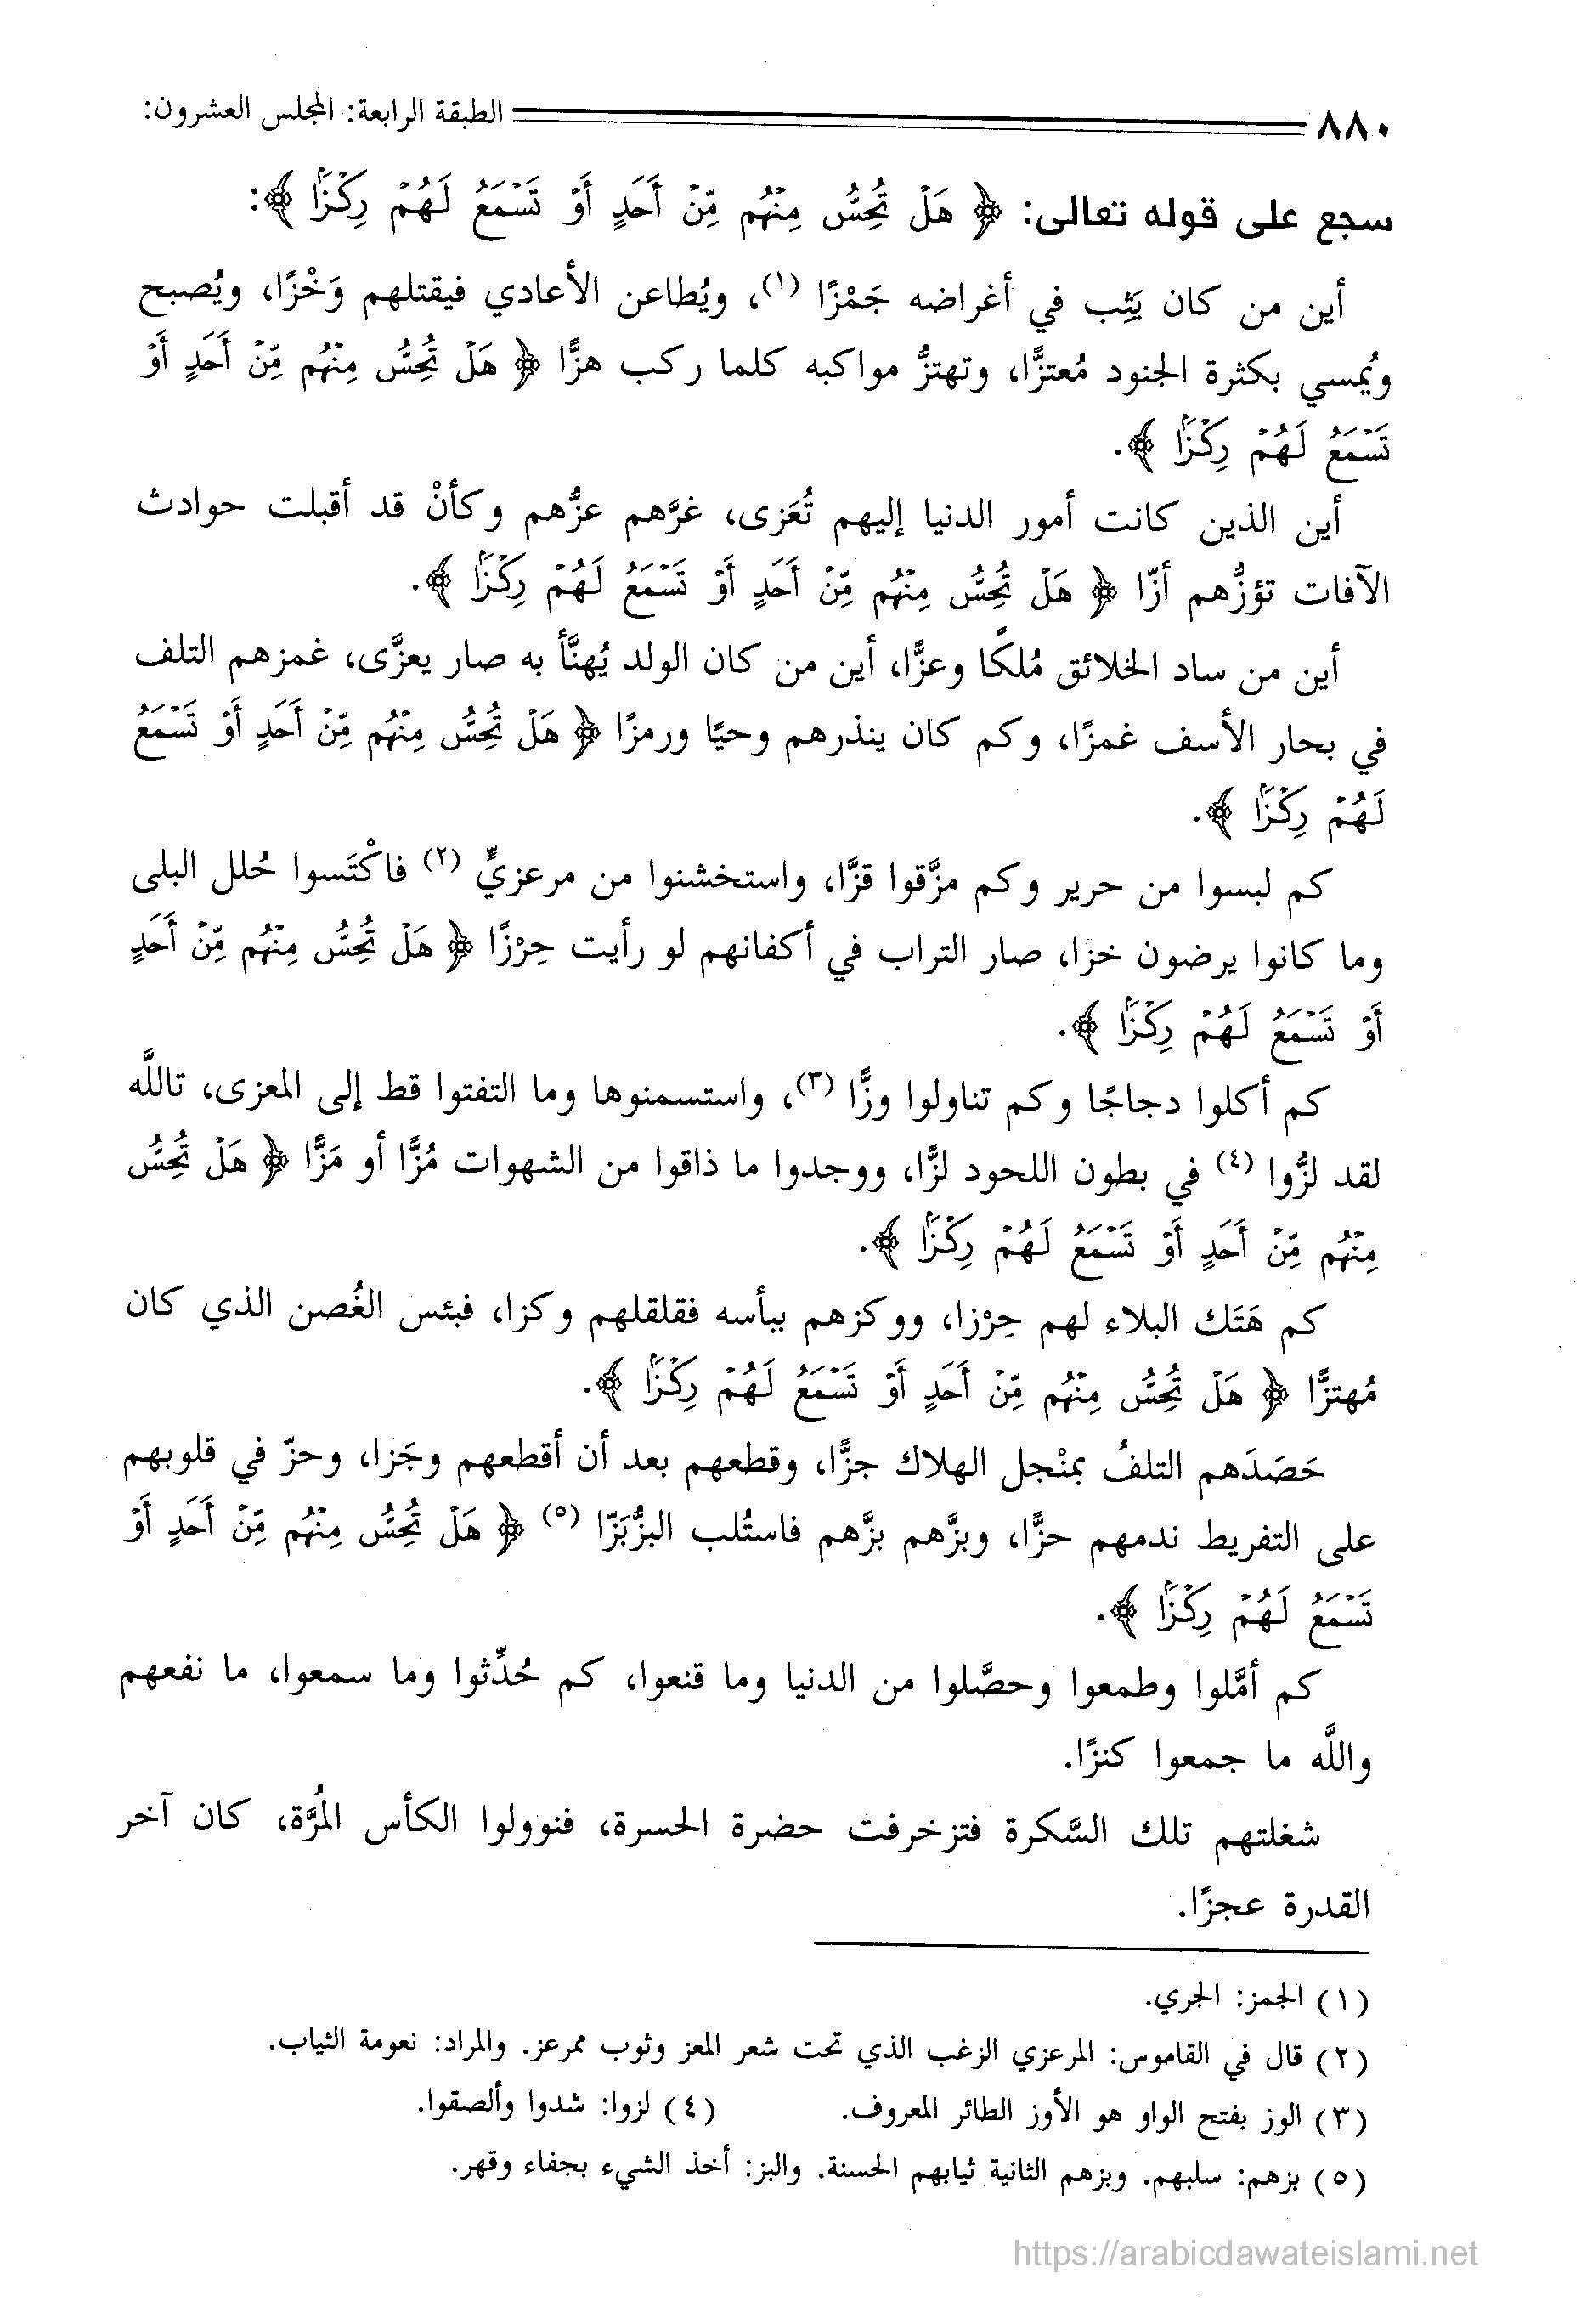 ٨٨٠ الطبقة الرابعة: المجلس العشرون:
سجع على قوله تعالى: ﴿ هَلْ تُحِسُّ مِنْهُم مِّنْ أَحَدٍ أَوْ تَسْمَعُ لَهُمْ رِكْزًا ﴾:
أين من كان يَثِب في أغراضه جَمْزًا (١)، ويُطاعن الأعادي فيقتلهم وَخْزًا، ويُصبح
ويُمسي بكثرة الجنود مُعتزًّا، وتهتزُّ مواكبه كلما ركب هزًّا ﴿ هَلْ تُحِسُّ مِنْهُم مِّنْ أَحَدٍ أَوْ
تَسْمَعُ لَهُمْ رِكْزًا ﴾.
أين الذين كانت أمور الدنيا إليهم تُعَزى، غرَّهم عزُّهم وكأنْ قد أقبلت حوادث
الآفات تؤزُّهم أزّا ﴿ هَلْ تُحِسُّ مِنْهُم مِّنْ أَحَدٍ أَوْ تَسْمَعُ لَهُمْ رِكْزًا ﴾.
أين من ساد الخلائق مُلكًا وعزًّا، أين من كان الولد يُهنَّأ به صار يعزَّى، غمزهم التلف
في بحار الأسف غمزًا، وكم كان ينذرهم وحيًا ورمزًا ﴿ هَلْ تُحِسُّ مِنْهُم مِّنْ أَحَدٍ أَوْ تَسْمَعُ
لَهُمْ رِكْزًا ﴾.
كم لبسوا من حرير وكم مزَّقوا قزَّا، واستخشنوا من مرعزيٍّ (٢) فاكْتَسوا حُلل البلى
وما كانوا يرضون خزا، صار التراب في أكفانهم لو رأيت حِرْزًا ﴿ هَلْ تُحِسُّ مِنْهُم مِّنْ أَحَدٍ
أَوْ تَسْمَعُ لَهُمْ رِكْزًا ﴾.
كم أكلوا دجاجًا وكم تناولوا وزًّا (٣)، واستسمنوها وما التفتوا قط إلى المعزى، تاللَّه
لقد لزُّوا (٤) في بطون اللحود لزَّا، ووجدوا ما ذاقوا من الشهوات مُزًّا أو مَزًّا ﴿ هَلْ تُحِسُّ
مِنْهُم مِّنْ أَحَدٍ أَوْ تَسْمَعُ لَهُمْ رِكْزًا ﴾.
كم هَتَك البلاء لهم حِرْزا، ووكزهم ببأسه فقلقلهم وكزا، فبئس الغُصن الذي كان
مُهتزًّا ﴿ هَلْ تُحِسُّ مِنْهُم مِّنْ أَحَدٍ أَوْ تَسْمَعُ لَهُمْ رِكْزًا ﴾.
حَصَدَهم التلفُ بمنْجل الهلاك جزًّا، وقطعهم بعد أن أقطعهم وجَزا، وحزّ في قلوبهم
على التفريط ندمهم حزًّا، وبزَّهم بزَّهم فاستُلب البزُّبَزّا (٥) ﴿ هَلْ تُحِسُّ مِنْهُم مِّنْ أَحَدٍ أَوْ
تَسْمَعُ لَهُمْ رِكْزًا ﴾.
كم أمَّلوا وطمعوا وحصَّلوا من الدنيا وما قنعوا، كم حُدِّثوا وما سمعوا، ما نفعهم
واللَّه ما جمعوا كنزًا.
شغلتهم تلك السَّكرة فتزخرفت حضرة الحسرة، فنوولوا الكأس المُرَّة، كان آخر
القدرة عجزًا.
(١) الجمز: الجري.
(٢) قال في القاموس: المرعزي الزغب الذي تحت شعر المعز وثوب ممرعز. والمراد: نعومة الثياب.
(٣) الوز بفتح الواو هو الأوز الطائر المعروف. (٤) لزوا: شدوا وألصقوا.
(٥) بزهم: سلبهم. وبزهم الثانية ثيابهم الحسنة. والبز: أخذ الشيء بجفاء وقهر.
https://arabicdawateislami.net